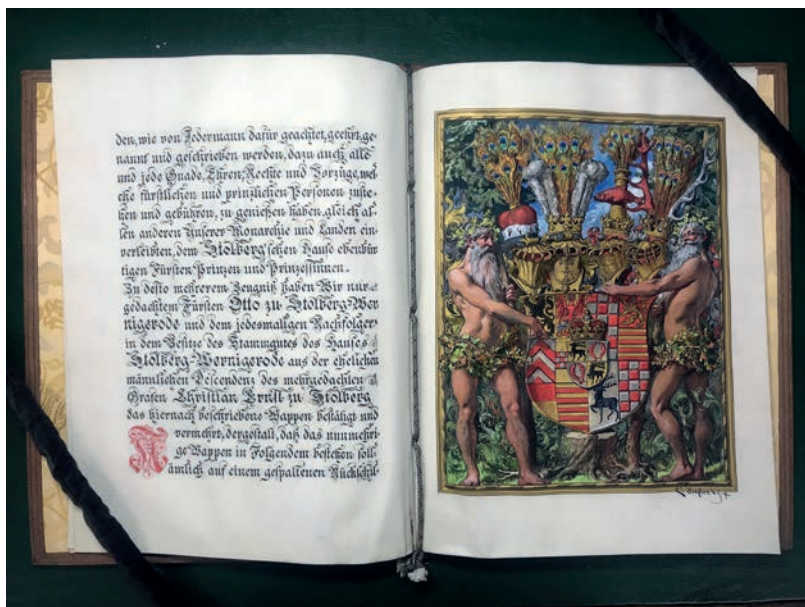 den, wie von Jedermann dafür geachtet, geehrt, ge-
nannt und geschrieben werden, dazu auch alle
und jede Gnade, Ehren, Rechte und Vorzüge, wel-
che fürstlichen und prinzlichen Personen zuste-
hen und gebühren, zu genießen haben, gleich al-
len anderen Unserer Monarchie und Landen ein-
verleibten, dem Stolberg'schen Hause ebenbür
tigen Fürsten Prinzen und Prinzessinnen.
Zu desto mehrerem Zeugniß haben Wir nur-
gedachtem Fürsten Otto zu Stolberg-Wer
nigerode und dem jedesmaligen Nachfolger
in dem Besitze des Stammgutes des Hauses
Stolberg-Wernigerode aus der ehelichen
männlichen Descendenz des mehrgedachten
Grafen Christian Ernst zu Stolberg
das hiernach beschriebene Wappen bestätigt und
vermehrt, dergestalt, daß das nunmehri
ge Wappen in Folgendem bestehen soll:
Nämlich auf einem gespaltenen Rückschil